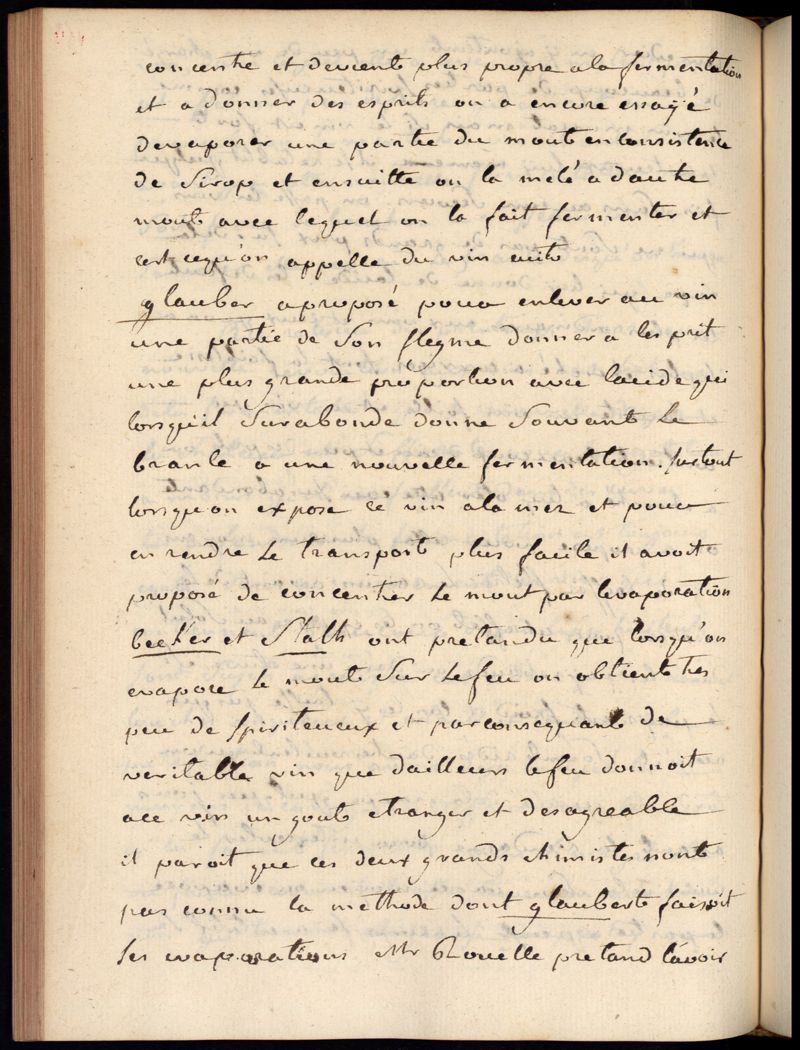 concentre et devient plus propre a la fermentation
et a donner des esprits on a encore essayé
devaporer une partie du mout en consistence
de Sirop et ensuitte on la melé a dautre
mout avec lequel on la fait fermenter et
cest cequ'on appelle du vin cuit
glauber a proposé pour enlever au vin
une partie de Son flegme donner a lesprit
une plus grande proportion avec lacide qui
lorsqu'il Surabonde donne Souvant Le
branle a une nouvelle fermentation. surtout
lorsqu'on expose ce vin ala mer et pour
en rendre Le transport plus facile il avoit
proposé de concentrer Le mout par levaporation
becker et Stalh ont pretandu que lorsqu'on
evapore Le mout Sur Le feu on obtient tres
peu de spiritueux et par consequant de
veritable vin que dailleurs lefeu donnoit
ace vin un gout etranger et desagreable
il paroit que ces deux grands chimistes nont
pas connu la methode dont glaubert faisoit
Ses evaporations Mr Rouelle pretand lavoir